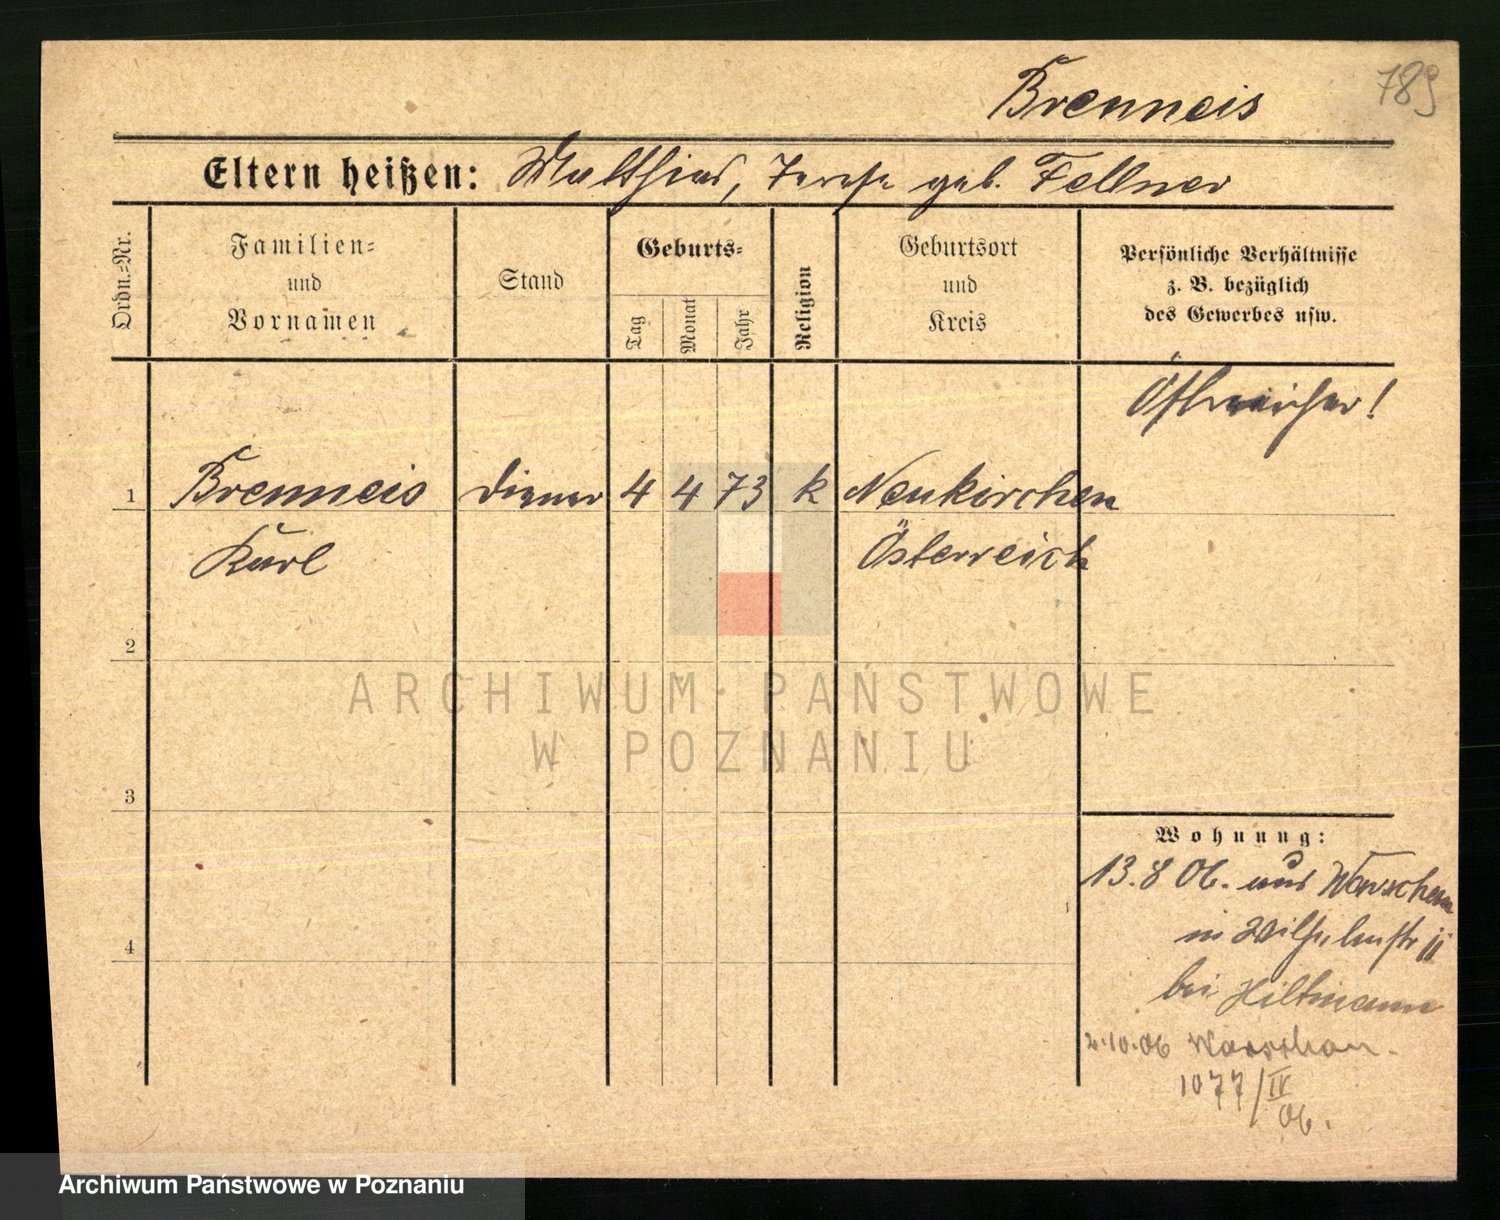 789
Brenneis
Eltern heißen: Matthias, Terese geb. Fellner
Ordn.=Nr.
Familien=
und
Vornamen
Stand
Geburts=
Tag
Monat
Jahr
Religion
Geburtsort
und
Kreis
Persönliche Verhältnisse
z. B. bezüglich
des Gewerbes usw.
Östreicher!
1 Brenneis Diener 4 4 73 k Neukirchen
Karl Österreich
2
3
4
Wohnung:
13.8 06. aus Warschau
in Wilhelmstr 11
bei Hiltmann
2.10.06 Warschau.
1077/IV
06.
ARCHIWUM PAŃSTWOWE
W POZNANIU
Archiwum Państwowe w Poznaniu